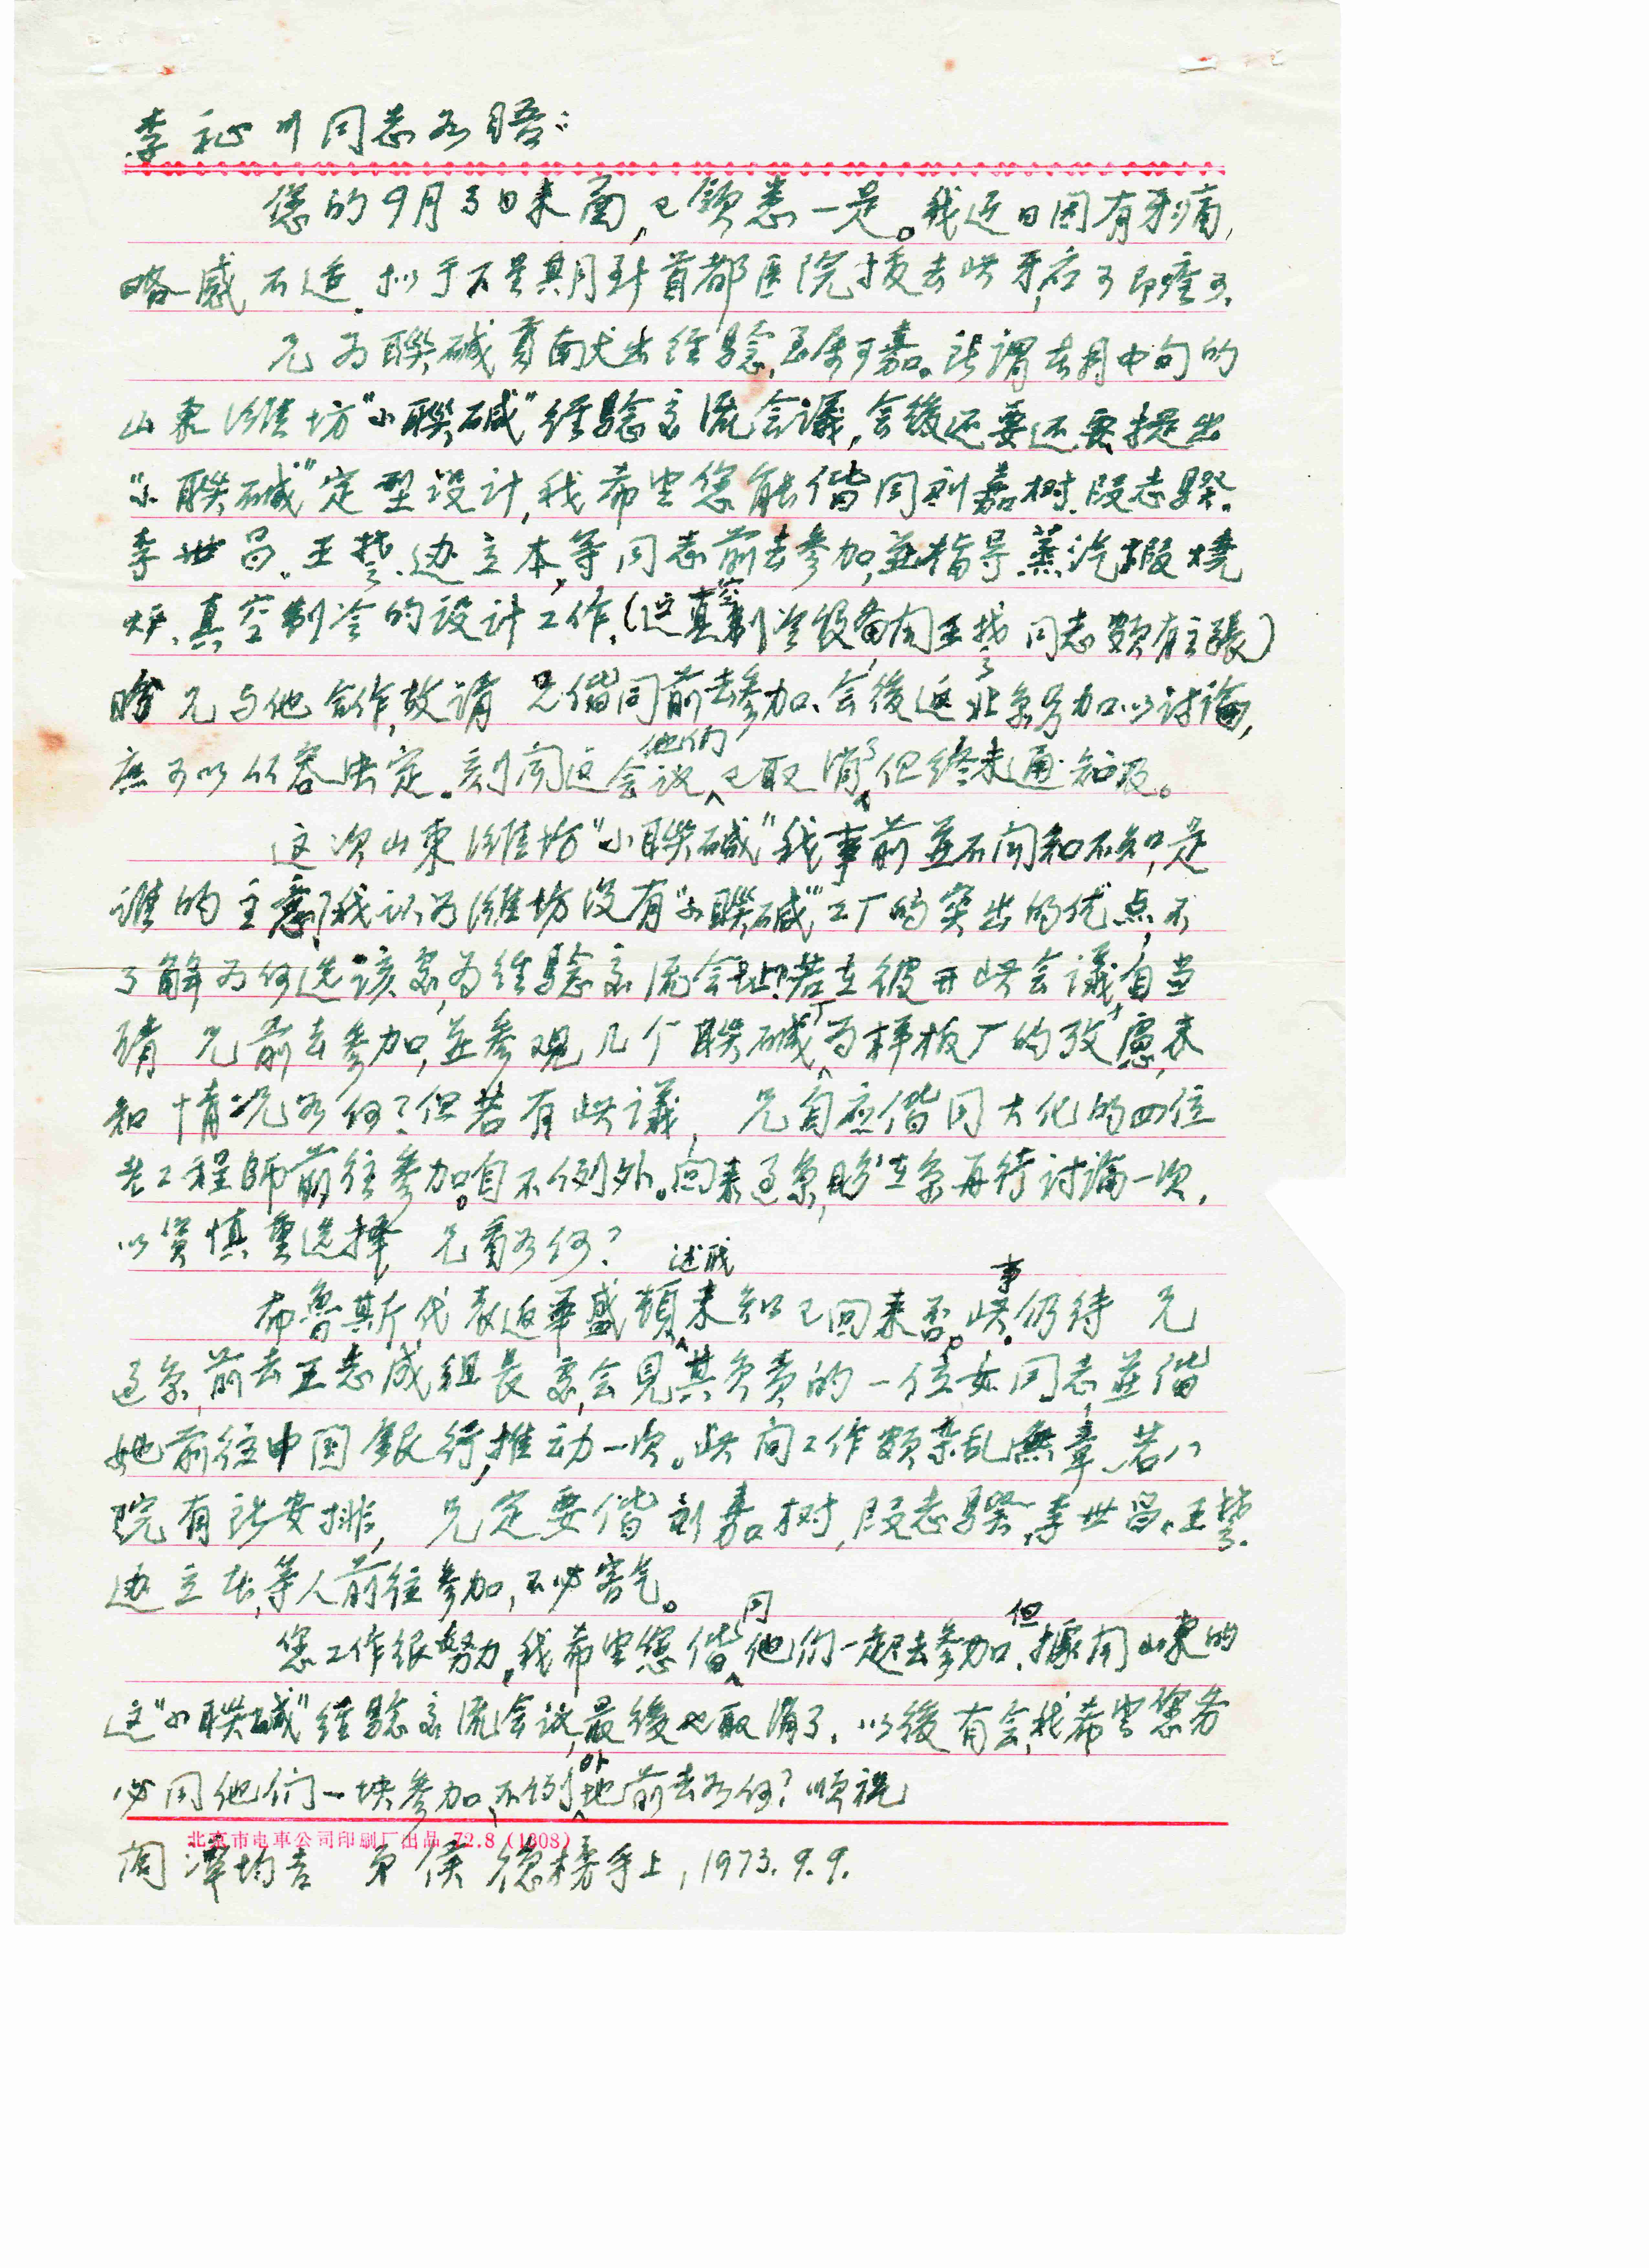 李祉川同志如晤：
您的9月3日来函，已领悉一是。我近日因有牙痛，
略感不适。拟于下星期到首都医院拔去此牙，应可即痊可。
兄为聯碱贡献出经驗，至属可嘉。所谓本月中旬的
山東濰坊"小聯碱"经驗交流会議，会後还要还要提出
"小聯碱"定型设计，我希望您能偕同刘嘉树、段志騤、
李世昌、王楚、边立本，等同志前去参加，並指导蒸汽煅燒
炉、真空制冷的设计工作。（这真空制冷设备闻王楚同志颇有主張）
盼兄与他合作，故请 兄偕同前去参加、会後返北京另加以讨論，
庶可以从容决定。刻闻这会议他们已取消了，但终未通知及。
这次山東濰坊"小聯碱"我事前並不闻知不知，是
谁的主意？我认为濰坊没有"小聯碱"工厂的突出的优点，不
了解为何选该处为经驗交流会址？若在彼开此会議，自当
请 兄前去参加，並参观几个聯碱厂为样板厂的攷慮，未
知情况如何？但若有此議， 兄自应偕同大化的四位
老工程師前往参加。自不例外。回来过京，盼在京再行讨論一次，
以資慎重选择 兄看如何？
布魯斯代表返華盛頓述职未知已回来否。此事仍待 兄
过京，前去王志成组长处，会見其负责的一位女同志，並偕
她前往中国銀行，推动一次。此间工作颇杂乱無章、若八
院有所安排， 兄定要偕刘嘉树，段志騤，李世昌，王楚，
边立本，等人前往参加，不必客气。
您工作很努力，我希望您偕同他们一起去参加，但據闻山東的
这"小聯碱"经驗交流会议，最後也取消了，以後有会，我希望您务
必同他们一块参加、不例外地前去如何？顺祝
北京市电車公司印刷厂出品 72.8（1308）
阖潭均吉 弟侯德榜手上，1973.9.9.